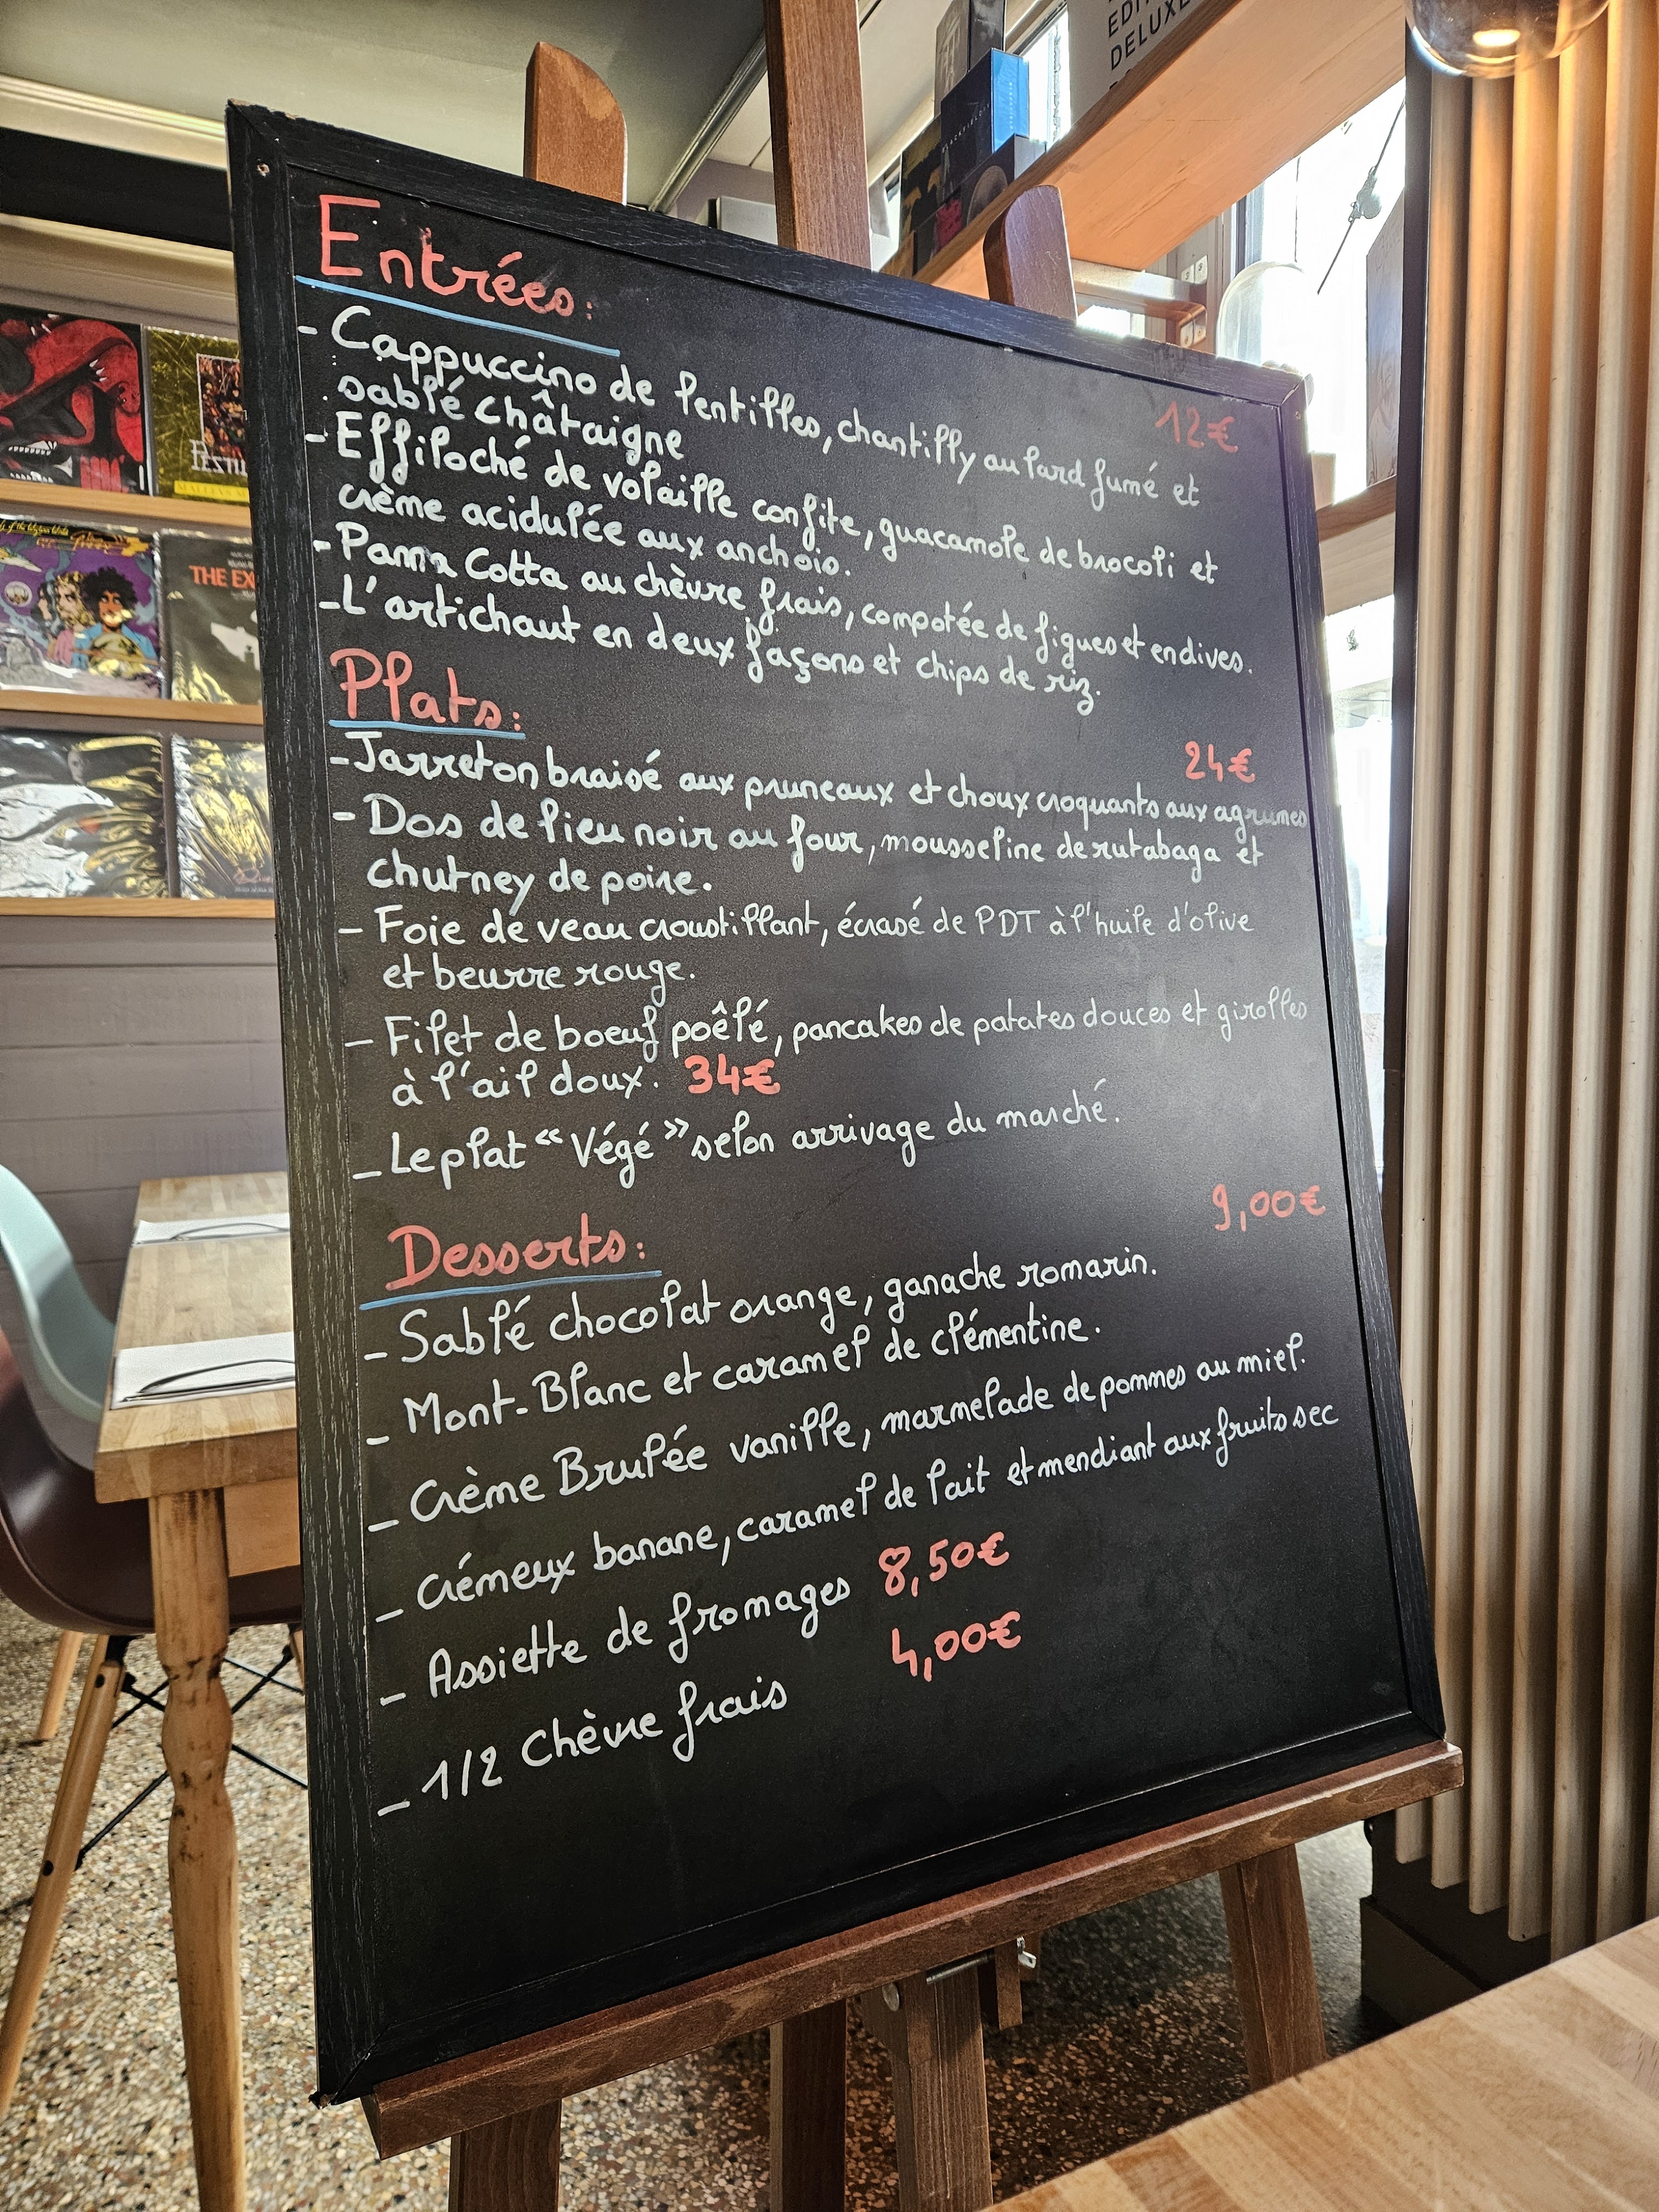 EDI
DELUXE
Entrées:
12€
- Cappuccino de lentilles, chantilly au lard fumé et
sablé châtaigne
- Effiloché de volaille confite, guacamole de brocoli et
crème acidulée aux anchois.
- Panna Cotta au chèvre frais, compotée de figues et endives.
- L'artichaut en deux façons et chips de riz.
Plats:
24€
- Jarreton braisé aux pruneaux et choux croquants aux agrumes
- Dos de lieu noir au four, mousseline de rutabaga et
chutney de poire.
- Foie de veau croustillant, écrasé de PDT à l'huile d'olive
et beurre rouge.
- Filet de boeuf poêlé, pancakes de patates douces et girolles
à l'ail doux. 34€
- Le plat "Végé" selon arrivage du marché.
9,00€
Desserts:
- Sablé chocolat orange, ganache romarin.
- Mont-Blanc et caramel de clémentine.
- Crème Brulée vanille, marmelade de pommes au miel.
- Crémeux banane, caramel de lait et mendiant aux fruits sec
- Assiette de fromages 8,50€
- 1/2 Chèvre frais 4,00€
THE EX